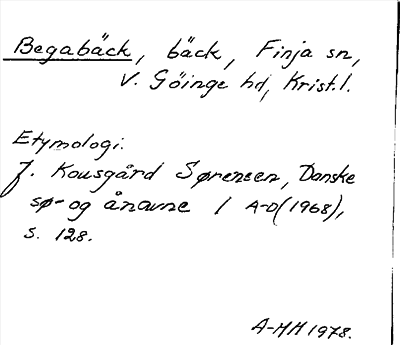 Begabäck, bäck, Finja sn,
V. Göinge hd, Krist. l.
Etymologi:
J. Kousgård Sørensen, Danske
sø- og ånavne 1 A-D (1968),
s. 128.
A-MH 1978.